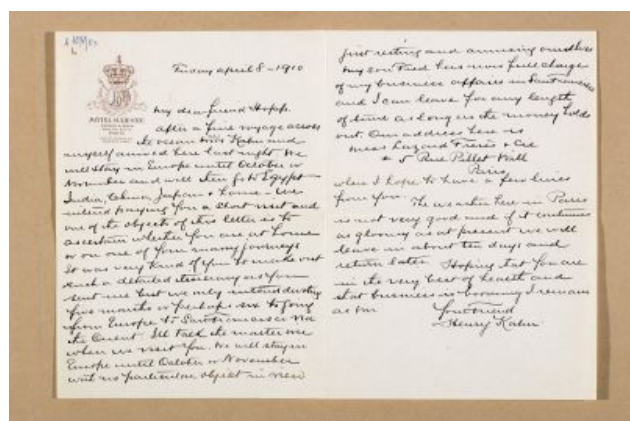 HOTEL MAJESTIC
PARIS
Friday April 8 - 1910
My dear friend Hoppe
After a fine voyage across
the ocean Mrs Kahn and
myself arrived here last night. We
will stay in Europe until October or
November and will then go to Egypt
India, China, Japan & home - We
intend paying you a short visit and
one of the objects of this letter is to
ascertain whether you are at home
or on one of your many journeys
It was very kind of you to make out
such a detailed itinerary as you
sent me but we only intend devoting
five months or perhaps six to going
from Europe to San Francisco via
the Orient. I'll talk the matter over
when we visit you. We will stay in
Europe until October or November
with no particular object in view
first resting and amusing ourselves
My son Fred has now full charge
of my business affairs in San Francisco
and I can leave for any length
of time as long as the money holds
out. Our address here is
Mess Lazard Freres & Cie
5 Rue Pillet Will
Paris
where I hope to have a few lines
from you. The weather here in Paris
is not very good and if it continues
as gloomy as at present we will
leave in about ten days and
return later. Hoping that you are
in the very best of health and
that business is booming I remain
as ever
Your friend
Henry Kahn